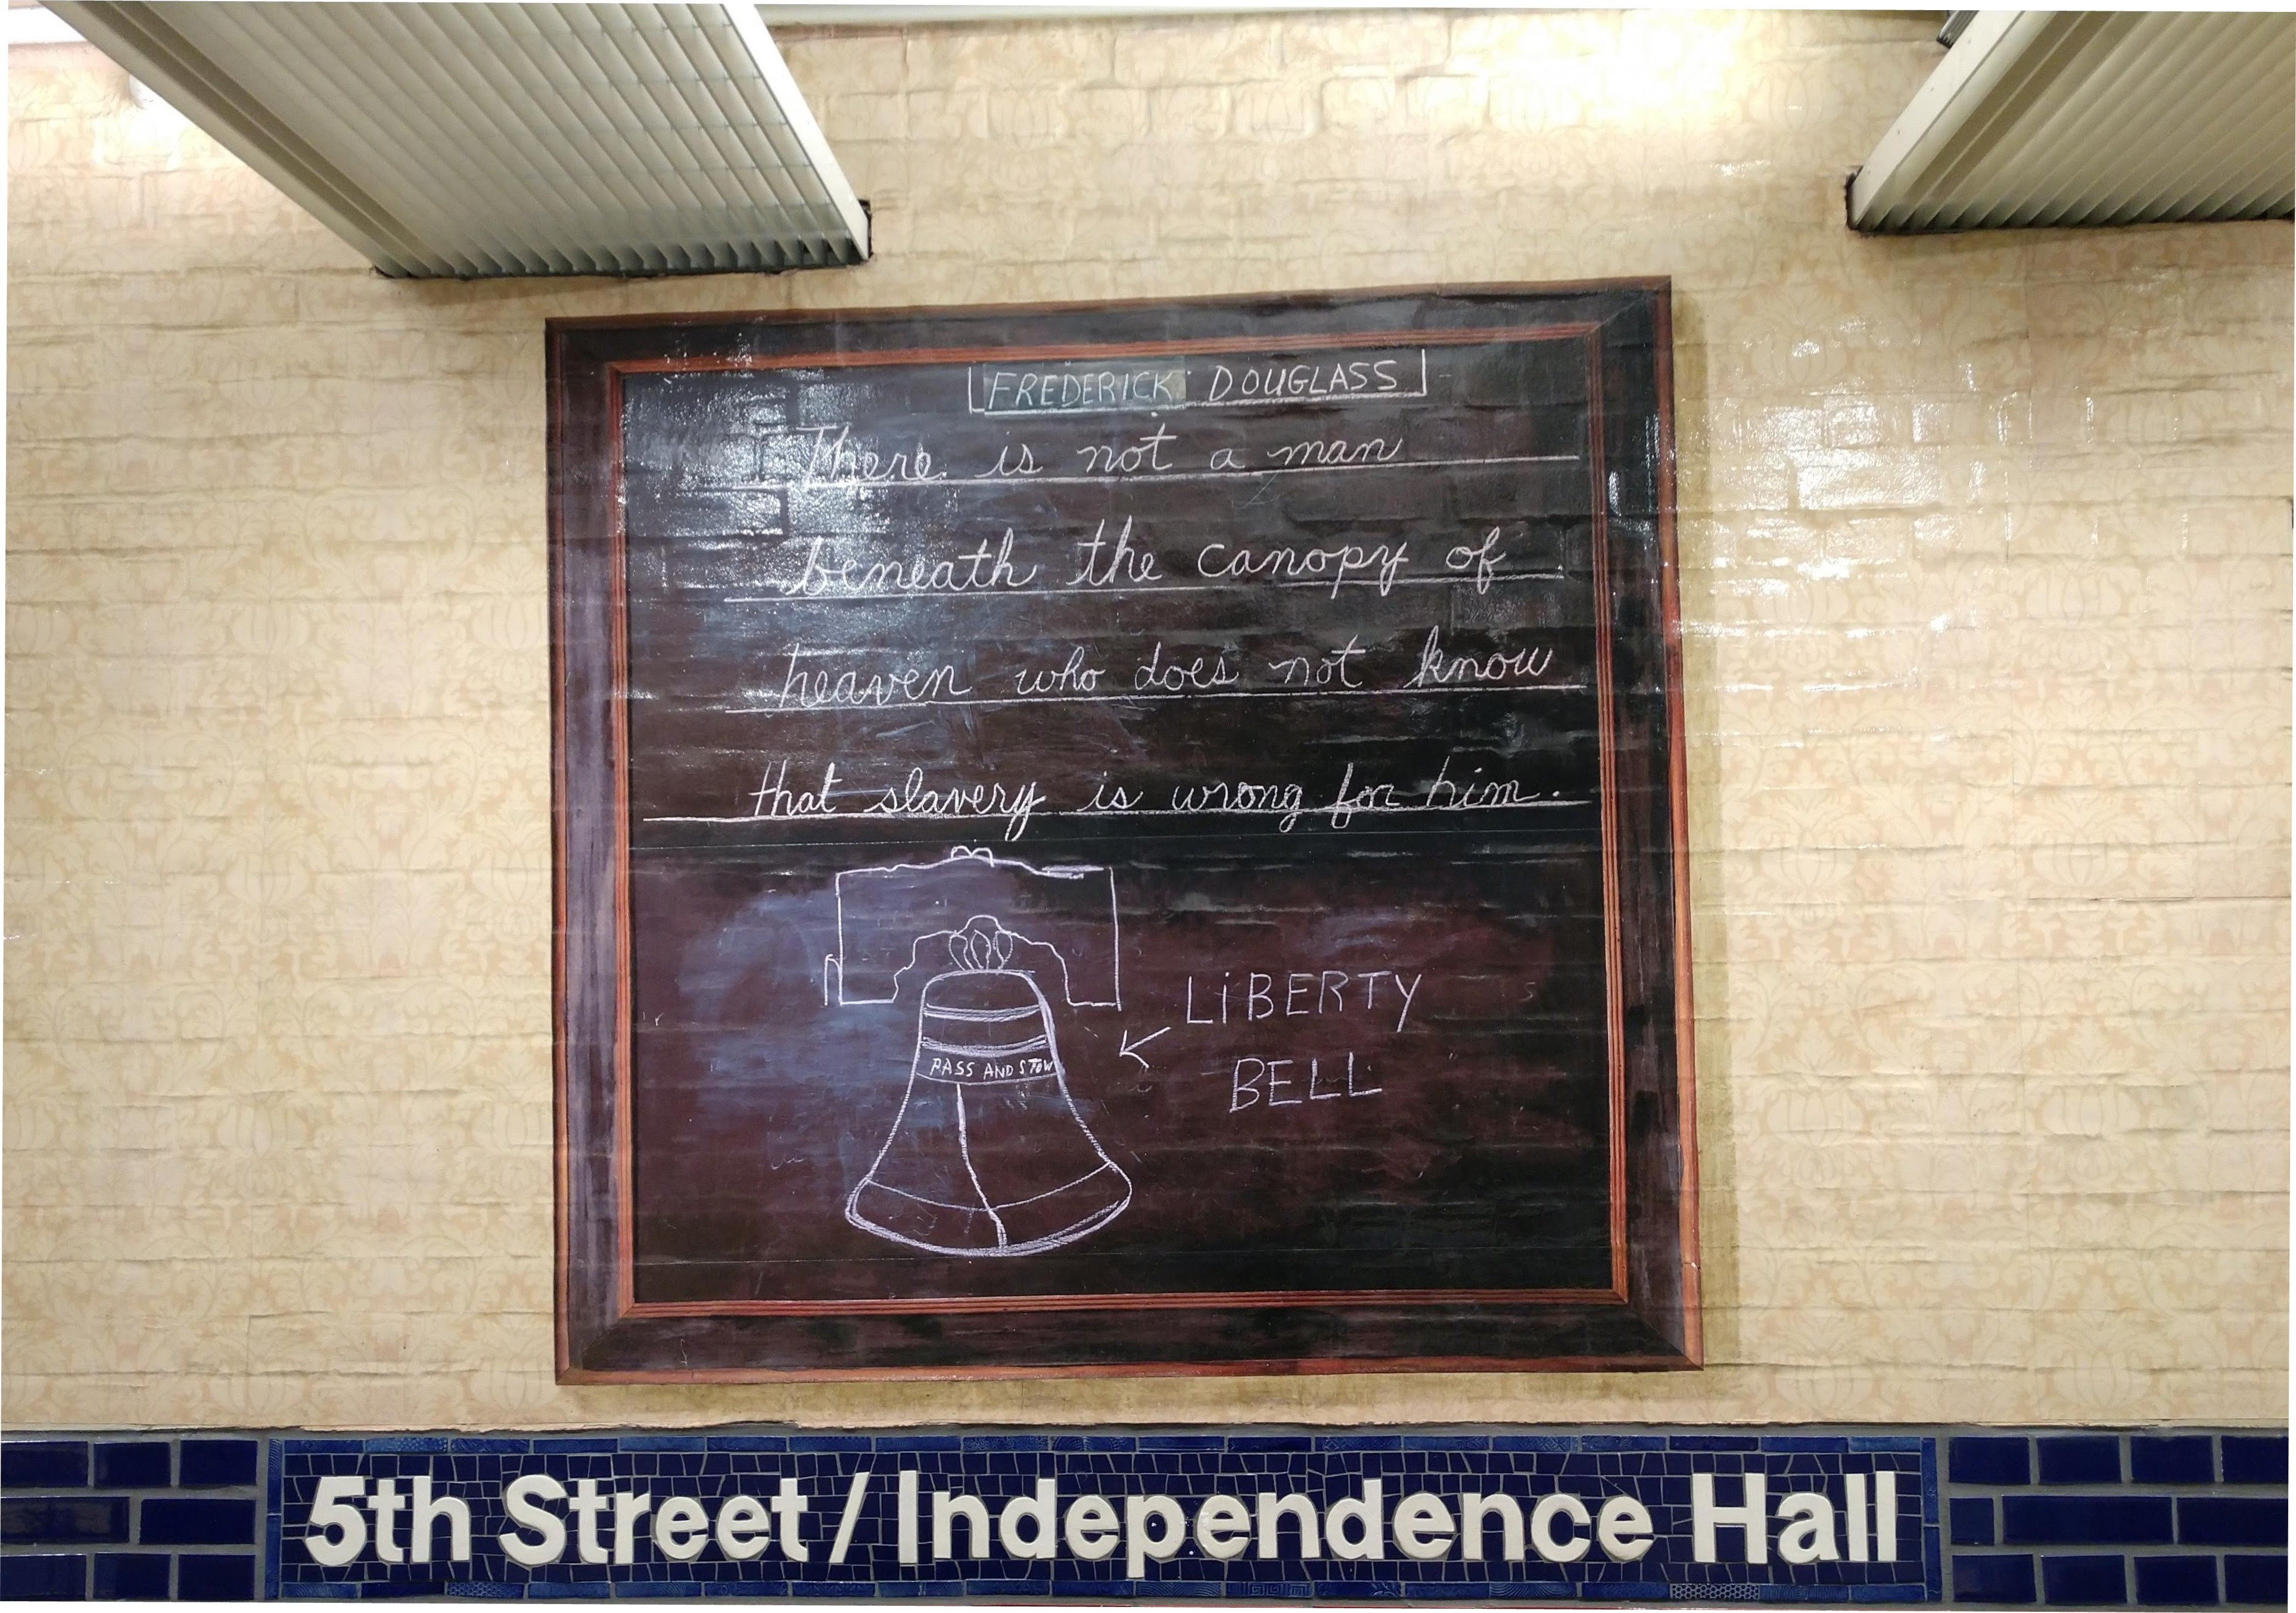 FREDERICK DOUGLASS
There is not a man
beneath the canopy of
heaven who does not know
that slavery is wrong for him.
LiBERTY
BELL
PASS AND STOW
5th Street / Independence Hall